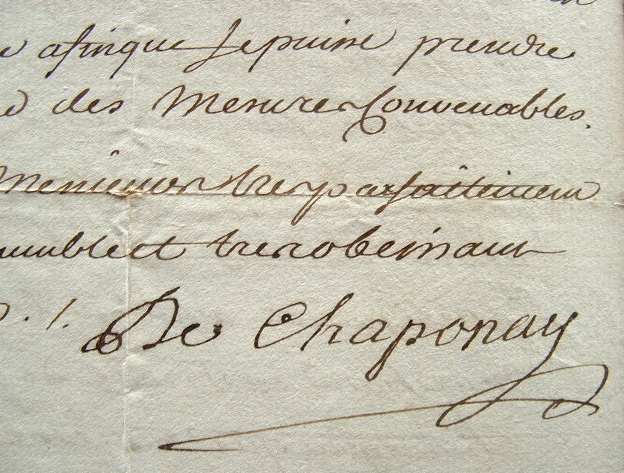 afinque Je puisse prendre
des Mesures Convenables.
Messieurs tres parfaittement
humble et tres obeissant
De Chaponay